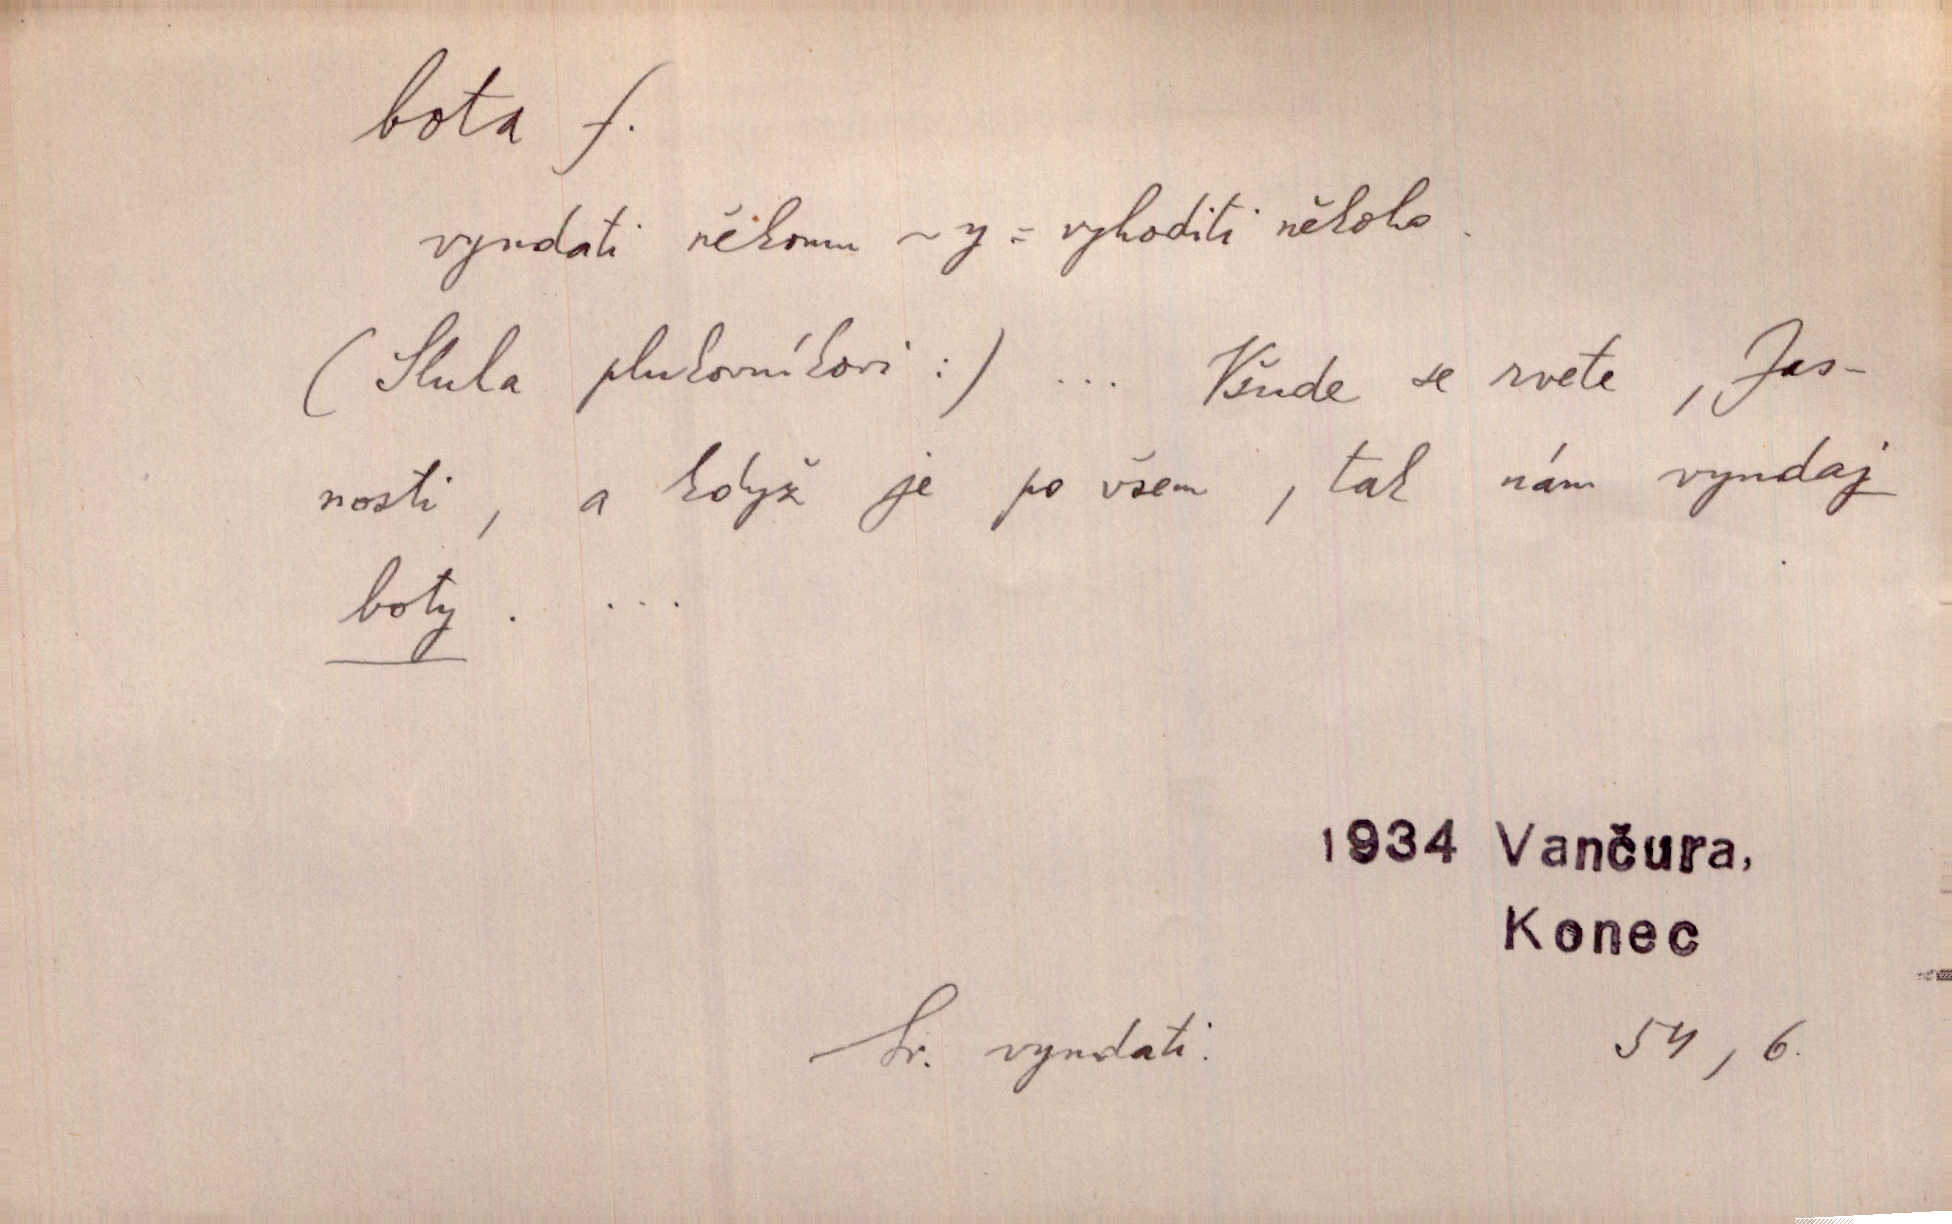 bota f.
vyndati někomu ~y = vyhoditi někoho.
(Slula plukovníkovi:) ... Všude se rvete, Jas-
nosti, a když je po všem, tak nám vyndaj
boty. ...
1934 Vančura,
Konec
Sr. vyndati.
54, 6.